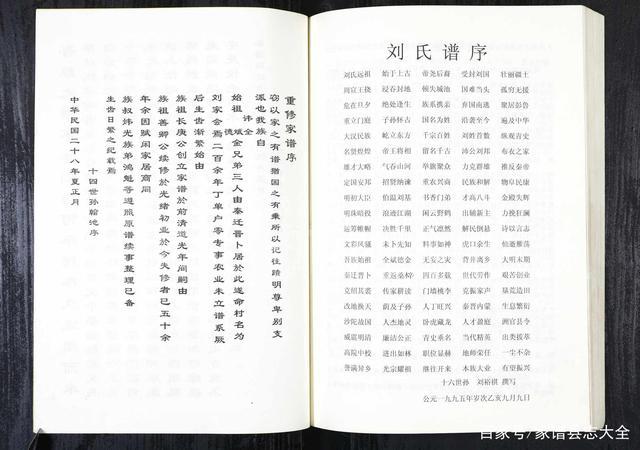 重修家谱序
窃以家之有谱犹国之有乘所以记往蹟明尊卑别支
派也我族自
始祖讳全斌德金兄弟三人由秦迁晋卜居於此遂命村名为
刘家会焉二百余年丁单户零专事农业未立谱系厥
后生齿渐繁始由
族祖长庚公创立家谱於前清道光年间嗣由
族祖善卿公续修於光绪初业於今失修者已五十余
年余因赋闲家居商同
族叔炜光族弟鸿魁等遵照原谱续事整理已备
生齿日繁之纪载焉
十四世孙翰池序
中华民国二十八年夏正月
刘氏谱序
刘氏远祖 始于上古 帝尧后裔 受封刘国 壮丽疆土
周宣王挠 浸吞封地 倾失城池 国难当头 孤穷无援
危在旦夕 绝处逢生 族系携亲 弃国南逃 聚居彭鲁
重立门庭 子孙怀古 国名为姓 沿袭至今 遍及中华
大汉民族 屹立东方 千宗百姓 刘姓首数 纵观青史
名贤煌煌 帝王将相 留名千古 沛公刘邦 布衣之家
雄才大略 气吞山河 举旗聚众 力克群雄 推反秦帝
定国安邦 招贤纳谏 重农兴商 民族和解 物阜民康
明初大臣 伯温刘基 书香门弟 才高八斗 金殿失辉
明珠暗投 浪迹江湖 闲云野鹤 出辅新主 力挽狂澜
运筹帷幄 决胜千里 正气凛然 解民倒悬 诗以言志
文彩风骚 未卜先知 料事如神 虎口余生 仙逝雁荡
吾族始祖 全斌德金 无妄之灾 背井离乡 大明末期
秦迁晋卜 重返桑梓 四百多载 世代劳作 艰苦创业
克绍其裘 传家耕读 门墙桃李 克振家声 垦荒造田
改地换天 荫及子孙 人丁旺兴 秦晋内蒙 生息繁衍
沙陀故国 人杰地灵 卧虎藏龙 人才盈庭 洲官县令
威震明清 廉洁公正 青史垂名 当代精英 出类拔萃
高院中校 进出如林 职位显赫 地师荣任 一尘不余
誉满异乡 光宗耀祖 继往开来 本族大业 有望振兴
十六世孙 刘裕祺 撰写
公元一九九五年岁次乙亥九月九日
百家号/家谱县志大全